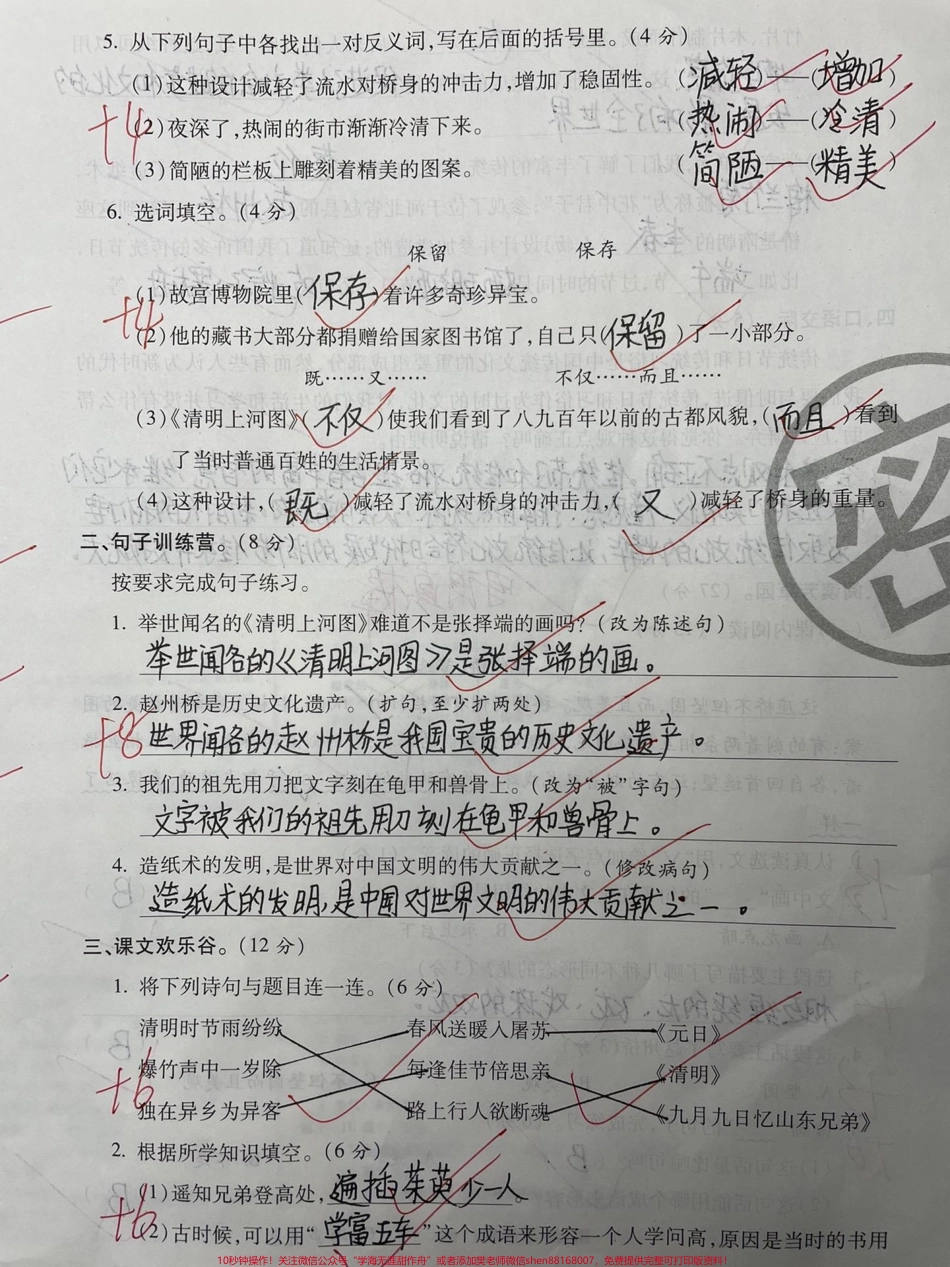 5. 从下列句子中各找出一对反义词,写在后面的括号里。(4 分)
(1)这种设计减轻了流水对桥身的冲击力,增加了稳固性。 (减轻)——(增加)
(2)夜深了,热闹的街市渐渐冷清下来。 (热闹)——(冷清)
(3)简陋的栏板上雕刻着精美的图案。 (简陋)——(精美)
+4
6. 选词填空。(4 分)
保留 保存
(1)故宫博物院里(保存)着许多奇珍异宝。
+4
(2)他的藏书大部分都捐赠给国家图书馆了,自己只(保留)了一小部分。
既……又…… 不仅……而且……
(3)《清明上河图》(不仅)使我们看到了八九百年以前的古都风貌,(而且)看到
了当时普通百姓的生活情景。
(4)这种设计,(既)减轻了流水对桥身的冲击力,(又)减轻了桥身的重量。
密
二、句子训练营。(8 分)
按要求完成句子练习。
1. 举世闻名的《清明上河图》难道不是张择端的画吗?(改为陈述句)
举世闻名的《清明上河图》是张择端的画。
2. 赵州桥是历史文化遗产。(扩句,至少扩两处)
+8
世界闻名的赵州桥是我国宝贵的历史文化遗产。
3. 我们的祖先用刀把文字刻在龟甲和兽骨上。(改为“被”字句)
文字被我们的祖先用刀刻在龟甲和兽骨上。
4. 造纸术的发明,是世界对中国文明的伟大贡献之一。(修改病句)
造纸术的发明,是中国对世界文明的伟大贡献之一。
三、课文欢乐谷。(12 分)
1. 将下列诗句与题目连一连。(6 分)
清明时节雨纷纷 春风送暖入屠苏 《元日》
爆竹声中一岁除 每逢佳节倍思亲 《清明》
+6
独在异乡为异客 路上行人欲断魂 《九月九日忆山东兄弟》
2. 根据所学知识填空。(6 分)
(1)遥知兄弟登高处,遍插茱萸少一人
+6
(2)古时候,可以用“学富五车”这个成语来形容一个人学问高,原因是当时的书用
10秒钟操作！关注微信公众号“学海无涯甜作舟”或者添加樊老师微信shen88168007，免费提供完整可打印版资料！